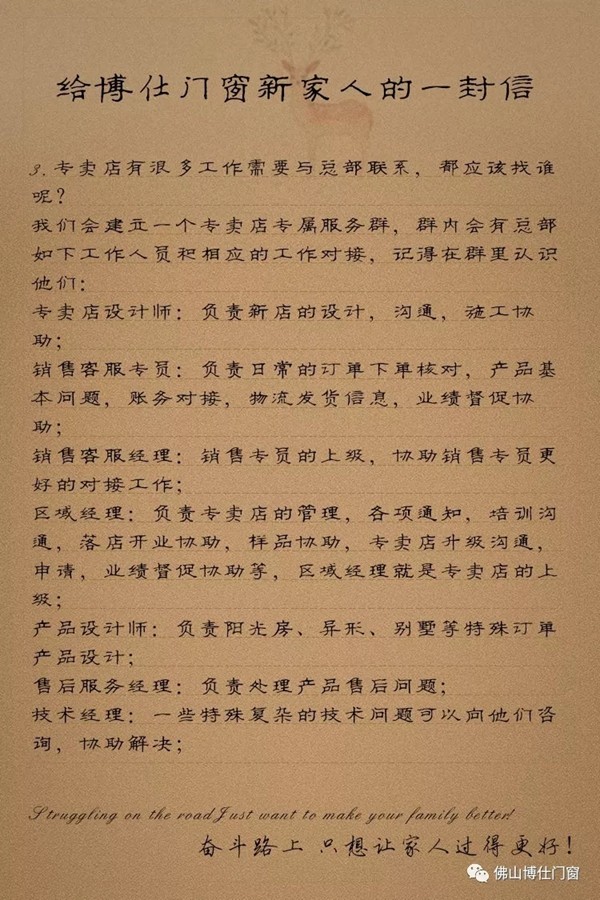 给博仕门窗新家人的一封信
3.专卖店有很多工作需要与总部联系，都应该找谁
呢？
我们会建立一个专卖店专属服务群，群内会有总部
如下工作人员和相应的工作对接，记得在群里认识
他们：
专卖店设计师：负责新店的设计，沟通，施工协
助；
销售客服专员：负责日常的订单下单核对，产品基
本问题，账务对接，物流发货信息，业绩督促协
助；
销售客服经理：销售专员的上级，协助销售专员更
好的对接工作；
区域经理：负责专卖店的管理，各项通知，培训沟
通，落店开业协助，样品协助，专卖店升级沟通，
申请，业绩督促协助等，区域经理就是专卖店的上
级；
产品设计师：负责阳光房、异形、别墅等特殊订单
产品设计；
售后服务经理：负责处理产品售后问题；
技术经理：一些特殊复杂的技术问题可以向他们咨
询，协助解决；
Struggling on the road Just want to make your family better!
奋斗路上 只想让家人过得更好！
佛山博仕门窗